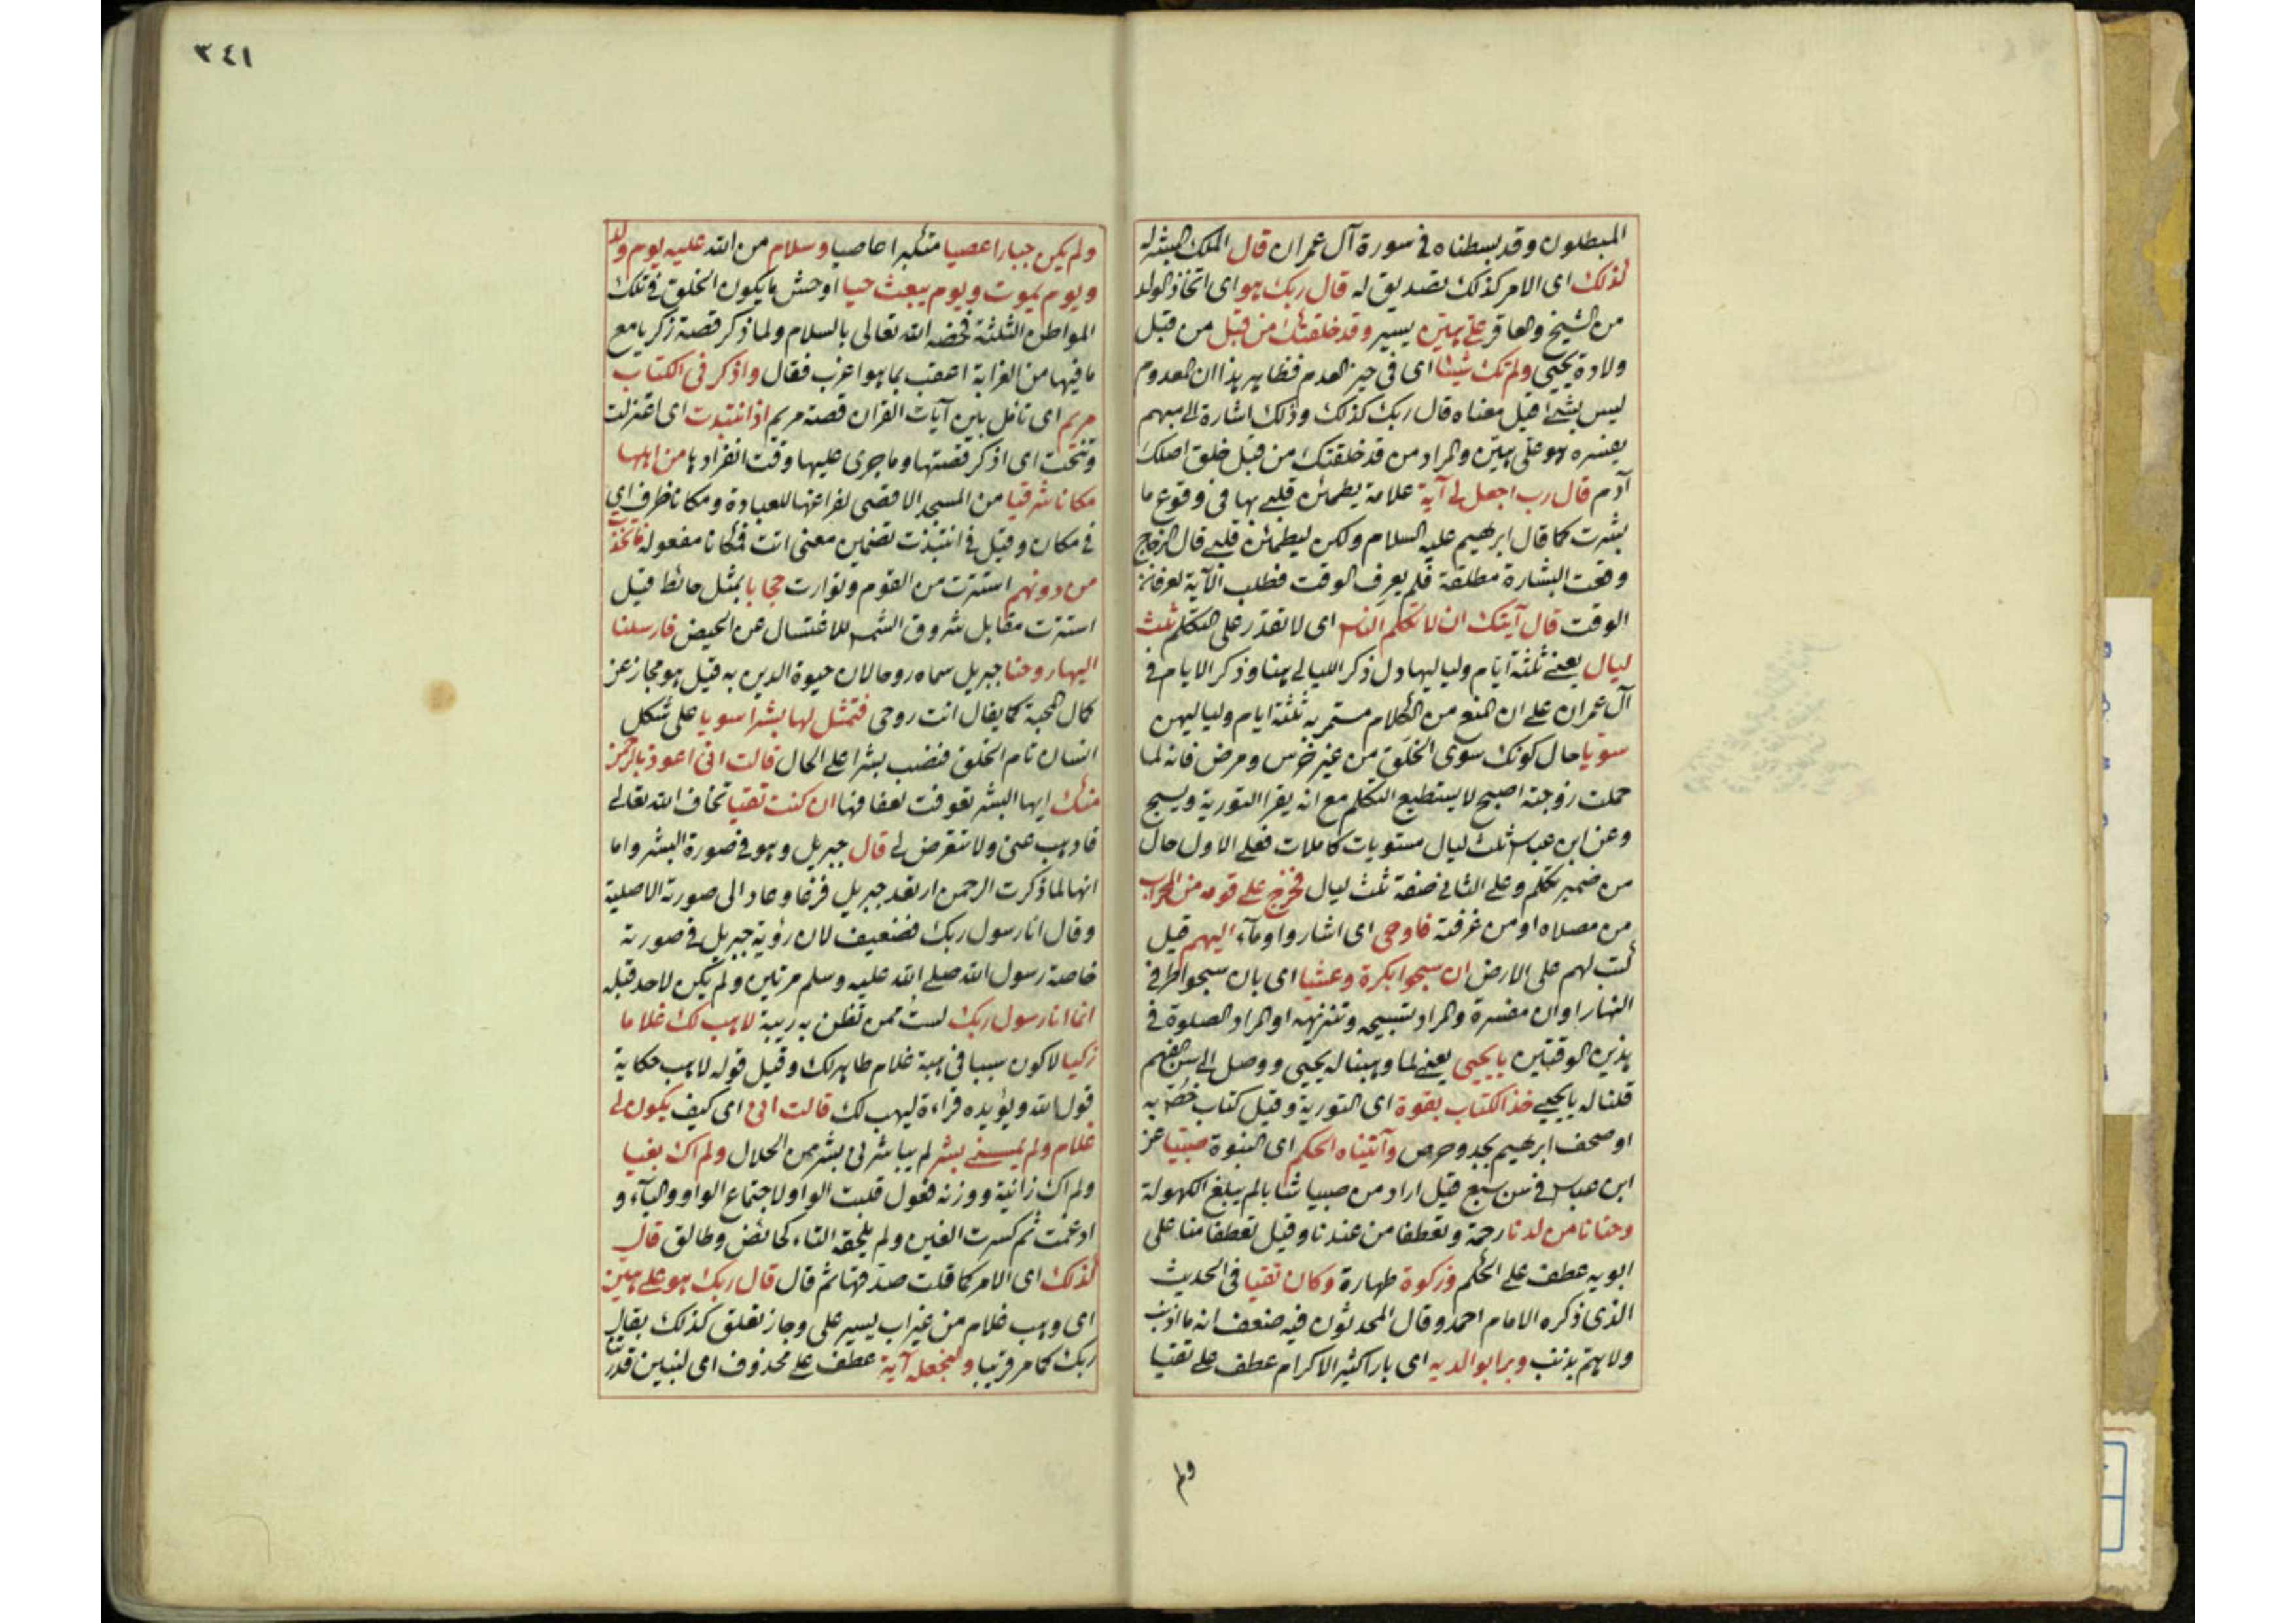 المبطلون وقد بسطناه في سورة آل عمران قال الملك المبشر له
كذلك اى الامر كذلك تصديق له قال ربك هو اى اتخاذ الولد
من الشيخ والعاقر على هين يسير وقد خلقتك من قبل من قبل
ولادة يحيى ولم تك شيئا اى فى حيز العدم فظاهر هذا ان المعدوم
ليس بشئ قيل معناه قال ربك كذلك وذلك اشارة الى مبهم
يفسره هو على هين والمراد من قد خلقتك من قبل خلق اصلك
آدم قال رب اجعل لى آية علامة يطمئن قلبى بها فى وقوع ما
بشرت كما قال ابرهيم عليه السلام ولكن ليطمئن قلبى قال الزجاج
وقعت البشارة مطلقة فلم يعرف الوقت فطلب الآية لعرفان
الوقت قال آيتك ان لا تكلم الناس اى لا تقدر على التكلم ثلث
ليال يعنى ثلثة ايام ولياليها دل ذكر الليالى هنا وذكر الايام فى
آل عمران على ان المنع من الكلام مستمر به ثلثة ايام ولياليهن
سويا حال كونك سوى الخلق من غير خرس ومرض فانه لما
حملت زوجته اصبح لا يستطيع التكلم مع انه يقرا التورية ويسبح
وعن ابن عباس ثلث ليال مستويات كاملات فعلى الاول حال
من ضمير تكلم وعلى الثانى صفة ثلث ليال فخرج على قومه من المحراب
من مصلاه او من غرفته فاوحى اى اشار واومآء اليهم قيل
كتب لهم على الارض ان سبحوا بكرة وعشيا اى بان سبحوا طرفى
النهار او ان مفسرة والمراد تسبيحه وتنزيهه او المراد الصلوة فى
هذين الوقتين يا يحيى يعنى لما وهبنا له يحيى ووصل الى سن الفهم
قلنا له يا يحيى خذ الكتاب بقوة اى التورية وقيل كتاب خص به
او صحف ابرهيم بجد وحرص وآتيناه الحكم اى النبوة صبيا عن
ابن عباس فى سن سبع قيل اراد من صبيا شابا لم يبلغ الكهولة
وحنانا من لدنا رحمة وتعطفا من عندنا وقيل تعطفا منا على
ابويه عطف على الحكم وزكوة طهارة وكان تقيا فى الحديث
الذى ذكره الامام احمد وقال المحدثون فيه ضعف انه ما اذنب
ولا يهم بذنب وبرا بوالديه اى بارا كثير الاكرام عطف على تقيا
ولم
٣٤١
ولم يكن جبارا عصيا متكبرا عاصيا وسلام من الله عليه يوم ولد
ويوم يموت ويوم يبعث حيا اوحش ما يكون الخلق فى تلك
المواطن الثلثة فخصه الله تعالى بالسلام ولما ذكر قصة زكريا مع
ما فيها من الغرابة اعقب بما هو اغرب فقال واذكر فى الكتاب
مريم اى تأمل بين آيات القران قصة مريم اذ انتبذت اى اعتزلت
وتنحت اى اذكر قصتها وما جرى عليها وقت انفرادها من اهلها
مكانا شرقيا من المسجد الاقصى لفراغها للعبادة ومكانا ظرف اى
فى مكان وقيل فى انتبذت تضمين معنى اتت فمكانا مفعوله فاتخذت
من دونهم استترت من القوم وتوارت حجابا بمثل حائط قيل
استترت مقابل شروق الشمس للاغتسال عن الحيض فارسلنا
اليها روحنا جبريل سماه روحا لان حيوة الدين به قيل هو مجاز عن
كمال المحبة كما يقال انت روحى فتمثل لها بشرا سويا على شكل
انسان تام الخلق فنصب بشرا على الحال قالت انى اعوذ بالرحمن
منك ايها البشر تعوذت لعفافها ان كنت تقيا تخاف الله تعالى
فاذهب عنى ولا تتعرض لى قال جبريل وهو فى صورة البشر واما
انها لما ذكرت الرحمن ارتعد جبريل فزعا وعاد الى صورته الاصلية
وقال انا رسول ربك فضعيف لان رؤية جبريل فى صورته
خاصة رسول الله صلى الله عليه وسلم مرتين ولم يكن لاحد قبله
انما انا رسول ربك لست ممن تظن به ريبة لاهب لك غلاما
زكيا لاكون سببا فى هبة غلام طاهر لك وقيل قوله لاهب حكاية
قول الله ويؤيده قراءة ليهب لك قالت انى اى كيف يكون لى
غلام ولم يمسسنى بشر لم يباشرنى بشر من الحلال ولم اك بغيا
ولم اك زانية ووزنه فعول قلبت الواو لاجتماع الواو واليآء و
ادغمت ثم كسرت الغين ولم يلحقه التاء كحائض وطالق قال
كذلك اى الامر كما قلت صدقها ثم قال قال ربك هو على هين
اى وهب غلام من غير اب يسير على وجاز تعلق كذلك بقال
ربك كما مر قريبا ولنجعله آية عطف على محذوف اى لنبين قدرتنا